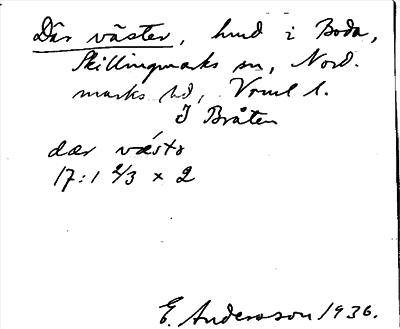 Där väster, hmd i Boda,
Skillingmarks sn, Nord-
marks hd, Vrml l.
I Bråten
dær væstə
17:1 2/3 x 2
E. Andersson 1936.